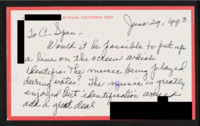 June 29, 1993
To C-Span -
Would it be possible to put up
a line on the screen which
identifies the music being played
during votes? The music is greatly
enjoyed but identification would
add a great deal